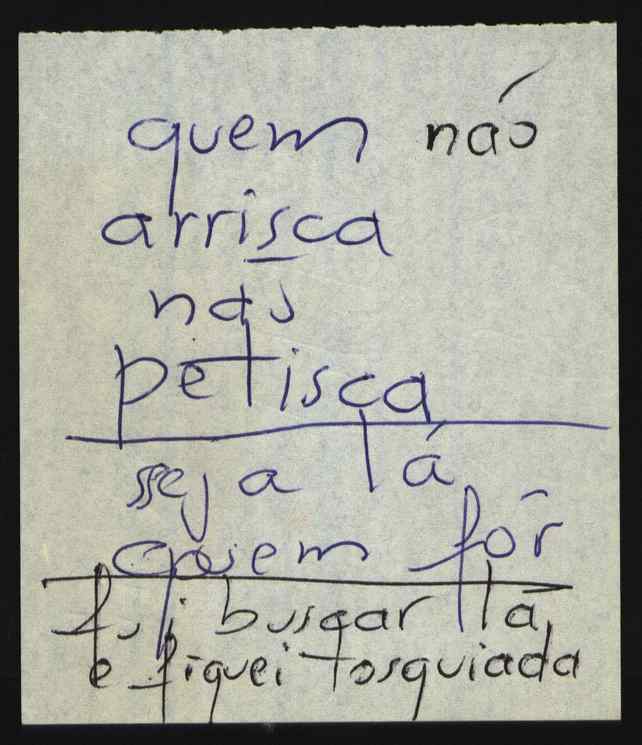 quem não
arrisca
não
petisca
seja lá
quem fôr
fui buscar lã
e fiquei tosquiada